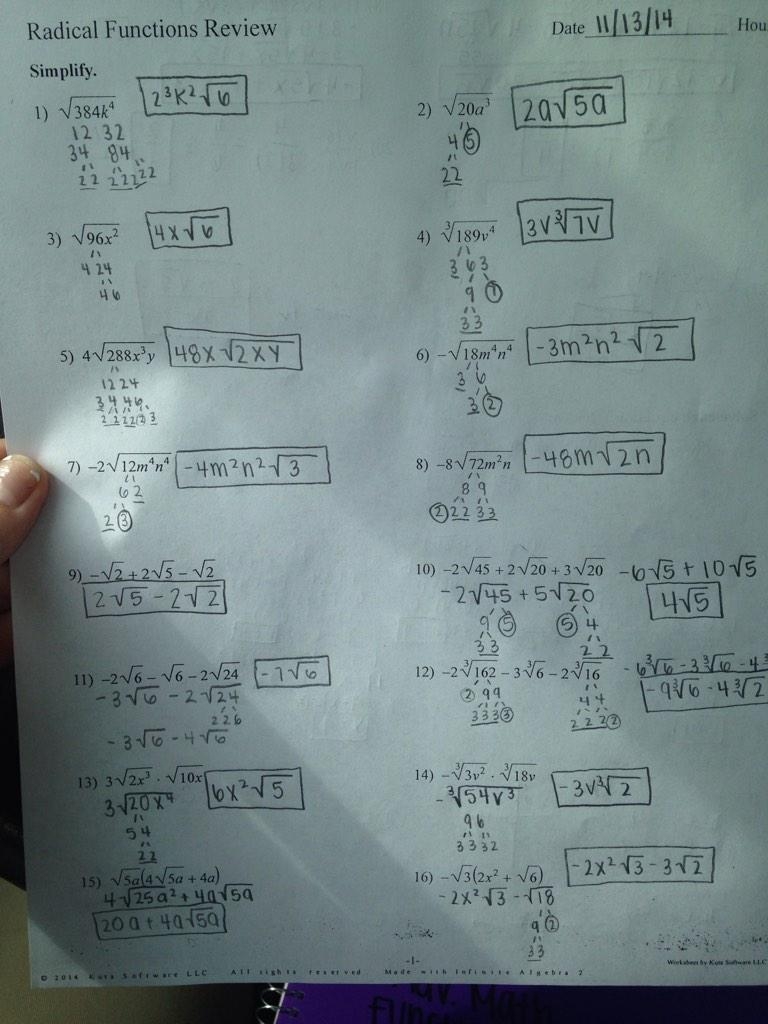 Radical Functions Review Date 11/13/14 Hou
Simplify.
1) √384k⁴ 2³K²√6
12 32
34 84
22 22222
2) √20a³ 2a√5a
4 5
22
3) √96x² 4x√6
4 24
4 6
4) ∛189v⁴ 3V∛7V
3 63
9 7
33
5) 4√288x³y 48x√2xy
12 24
3 4 4 6
2 2 2 2 2 3
6) −√18m⁴n⁴ -3m²n²√2
3 6
3 2
7) −2√12m⁴n⁴ -4m²n²√3
6 2
2 3
8) −8√72m²n -48m√2n
8 9
2 22 33
9) −√2 + 2√5 − √2
2√5 - 2√2
10) −2√45 + 2√20 + 3√20 -6√5 + 10√5
-2√45 + 5√20 4√5
9 5 5 4
33 22
11) −2√6 − √6 − 2√24 -7√6
-3√6 - 2√24
2 2 6
-3√6 - 4√6
12) −2∛162 − 3∛6 − 2∛16 -6∛6 - 3∛6 - 4∛
2 99 44 -9∛6 - 4∛2
3333 2222
13) 3√2x³ · √10x 6x²√5
3√20x⁴
54
22
14) −∛3v² · ∛18v -3V∛2
-∛54V³
96
3332
15) √5a(4√5a + 4a)
4√25a² + 4a√5a
20a + 4a√5a
16) −√3(2x² + √6) -2x²√3 - 3√2
-2x²√3 - √18
9 2
33
-1-
© 2014 Kuta Software LLC All rights reserved Made with Infinite Algebra 2 Worksheet by Kuta Software LLC
Math